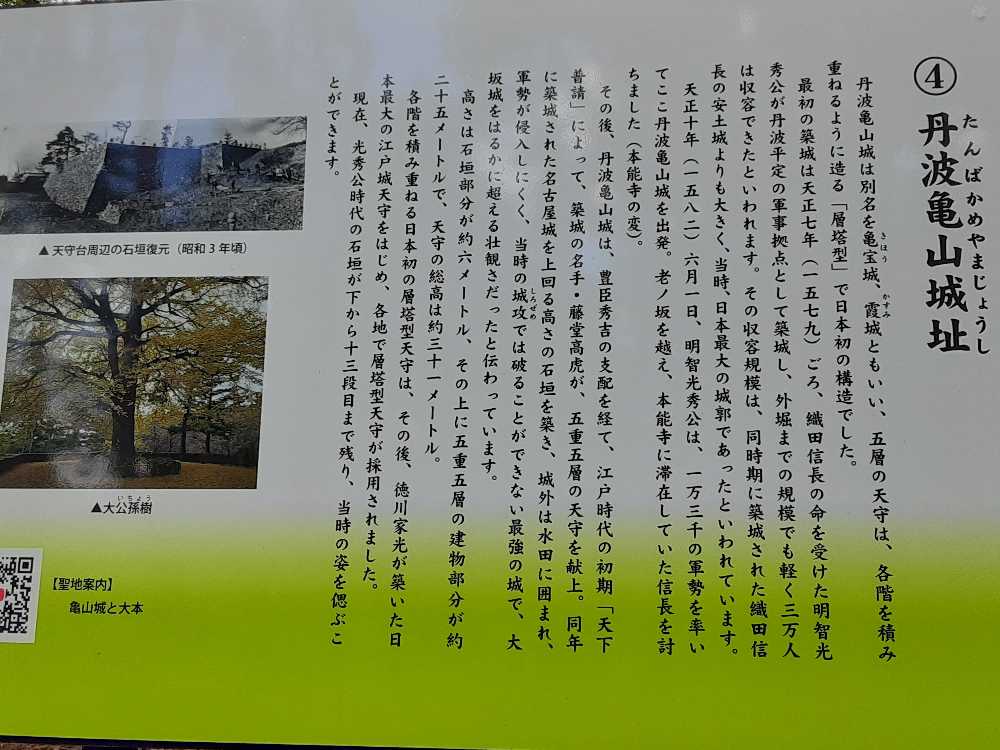 ④ 丹波亀山城址
たんばかめやまじょうし
丹波亀山城は別名を亀宝城、霞城ともいい、五層の天守は、各階を積み
きほう
かすみ
重ねるように造る「層塔型」で日本初の構造でした。
最初の築城は天正七年（一五七九）ごろ、織田信長の命を受けた明智光
秀公が丹波平定の軍事拠点として築城し、外堀までの規模でも軽く三万人
は収容できたといわれます。その収容規模は、同時期に築城された織田信
長の安土城よりも大きく、当時、日本最大の城郭であったといわれています。
天正十年（一五八二）六月一日、明智光秀公は、一万三千の軍勢を率い
てここ丹波亀山城を出発。老ノ坂を越え、本能寺に滞在していた信長を討
ちました（本能寺の変）。
その後、丹波亀山城は、豊臣秀吉の支配を経て、江戸時代の初期「天下
普請」によって、築城の名手・藤堂高虎が、五重五層の天守を献上。同年
に築城された名古屋城を上回る高さの石垣を築き、城外は水田に囲まれ、
軍勢が侵入しにくく、当時の城攻では破ることができない最強の城で、大
しろぜめ
坂城をはるかに超える壮観さだったと伝わっています。
高さは石垣部分が約六メートル、その上に五重五層の建物部分が約
二十五メートルで、天守の総高は約三十一メートル。
各階を積み重ねる日本初の層塔型天守は、その後、徳川家光が築いた日
本最大の江戸城天守をはじめ、各地で層塔型天守が採用されました。
現在、光秀公時代の石垣が下から十三段目まで残り、当時の姿を偲ぶこ
とができます。
▲天守台周辺の石垣復元（昭和3年頃）
いちょう
▲大公孫樹
【聖地案内】
亀山城と大本